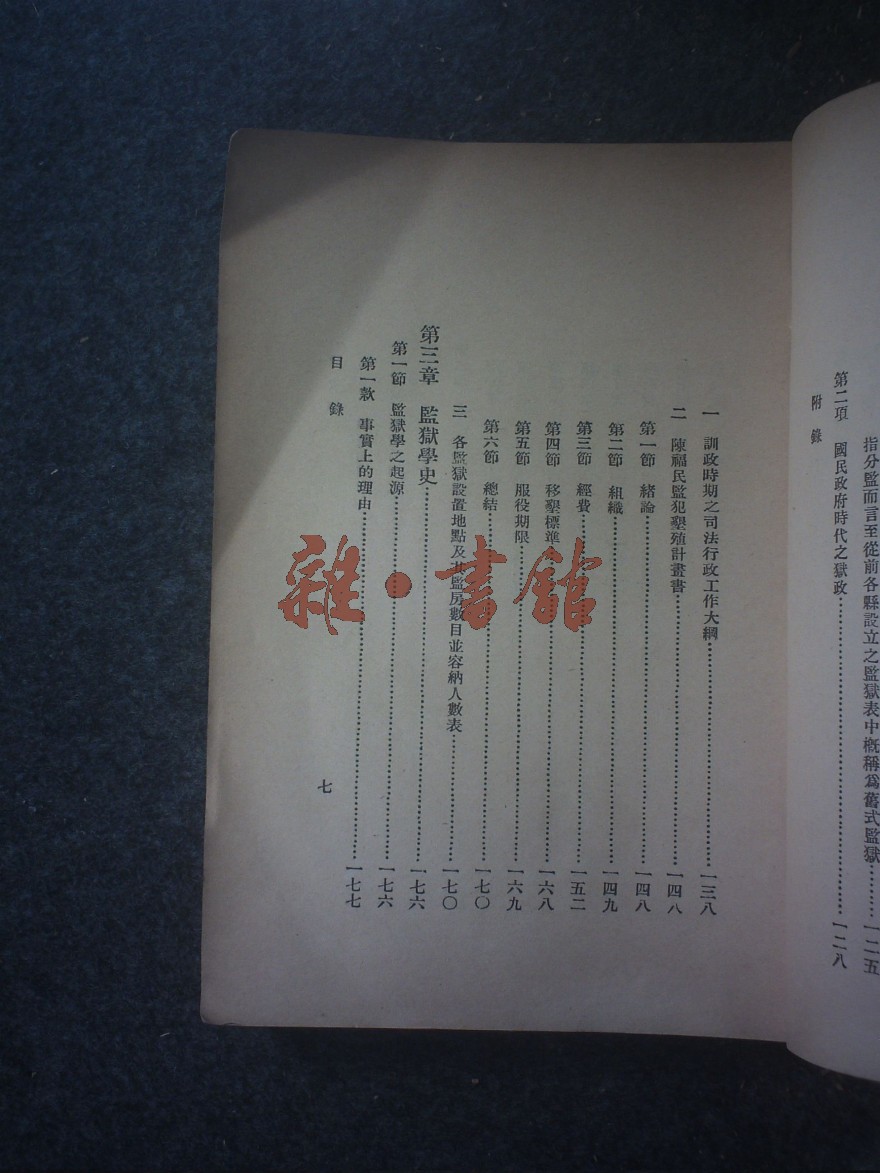 指分監而言至從前各縣設立之監獄表中概稱爲舊式監獄………一二五
第二項　國民政府時代之獄政………一二八
附錄
一　訓政時期之司法行政工作大綱………一三八
二　陳福民監犯墾殖計畫書………一四八
第一節　緒論………一四八
第二節　組織………一四九
第三節　經費………一五二
第四節　移墾標準………一六八
第五節　服役期限………一六九
第六節　總結………一七〇
三　各監獄設置地點及其監房數目並容納人數表………一七〇
第三章　監獄學史………一七六
第一節　監獄學之起源………一七六
第一款　事實上的理由………一七七
目錄
七
雜·書館